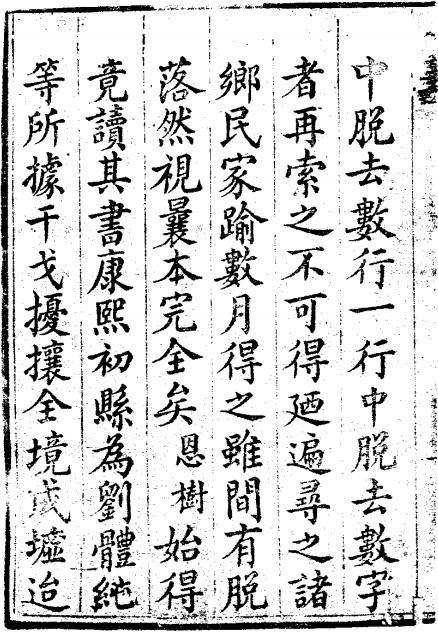 中脫去數行一行中脫去數字
者再索之不可得廼遍尋之諸
鄉民家踰數月得之雖間有脫
落然視曩本完全矣恩樹始得
竟讀其書康熙初縣為劉體純
等所據干戈擾攘全境成墟迨